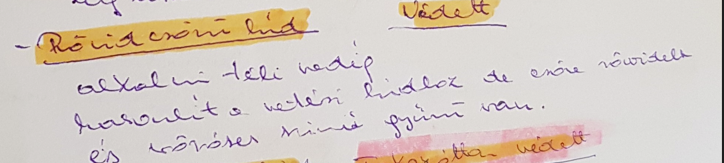 - Rövidcsőrű lúd Védett
alkalmi téli vendég
hasonlít a vetési lúdhoz de csőre rövidebb
és vöröses színű gyűrű van.
védett